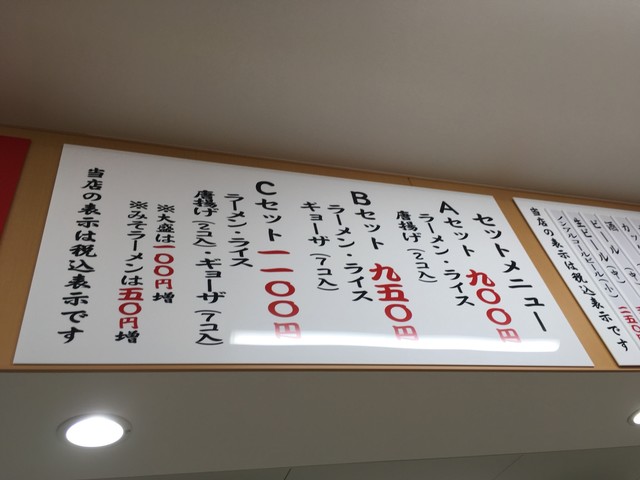 セットメニュー
Aセット 九〇〇円
ラーメン・ライス
唐揚げ(2コ入)
Bセット 九五〇円
ラーメン・ライス
ギョーザ(7コ入)
Cセット 一一〇〇円
ラーメン・ライス
唐揚げ(2コ入)・ギョーザ(7コ入)
※大盛は一〇〇円増
※みそラーメンは五〇円増
当店の表示は税込表示です
生ビール(中)
生ビール(小)
ノンアルコールビール
当店の表示は税込表示です